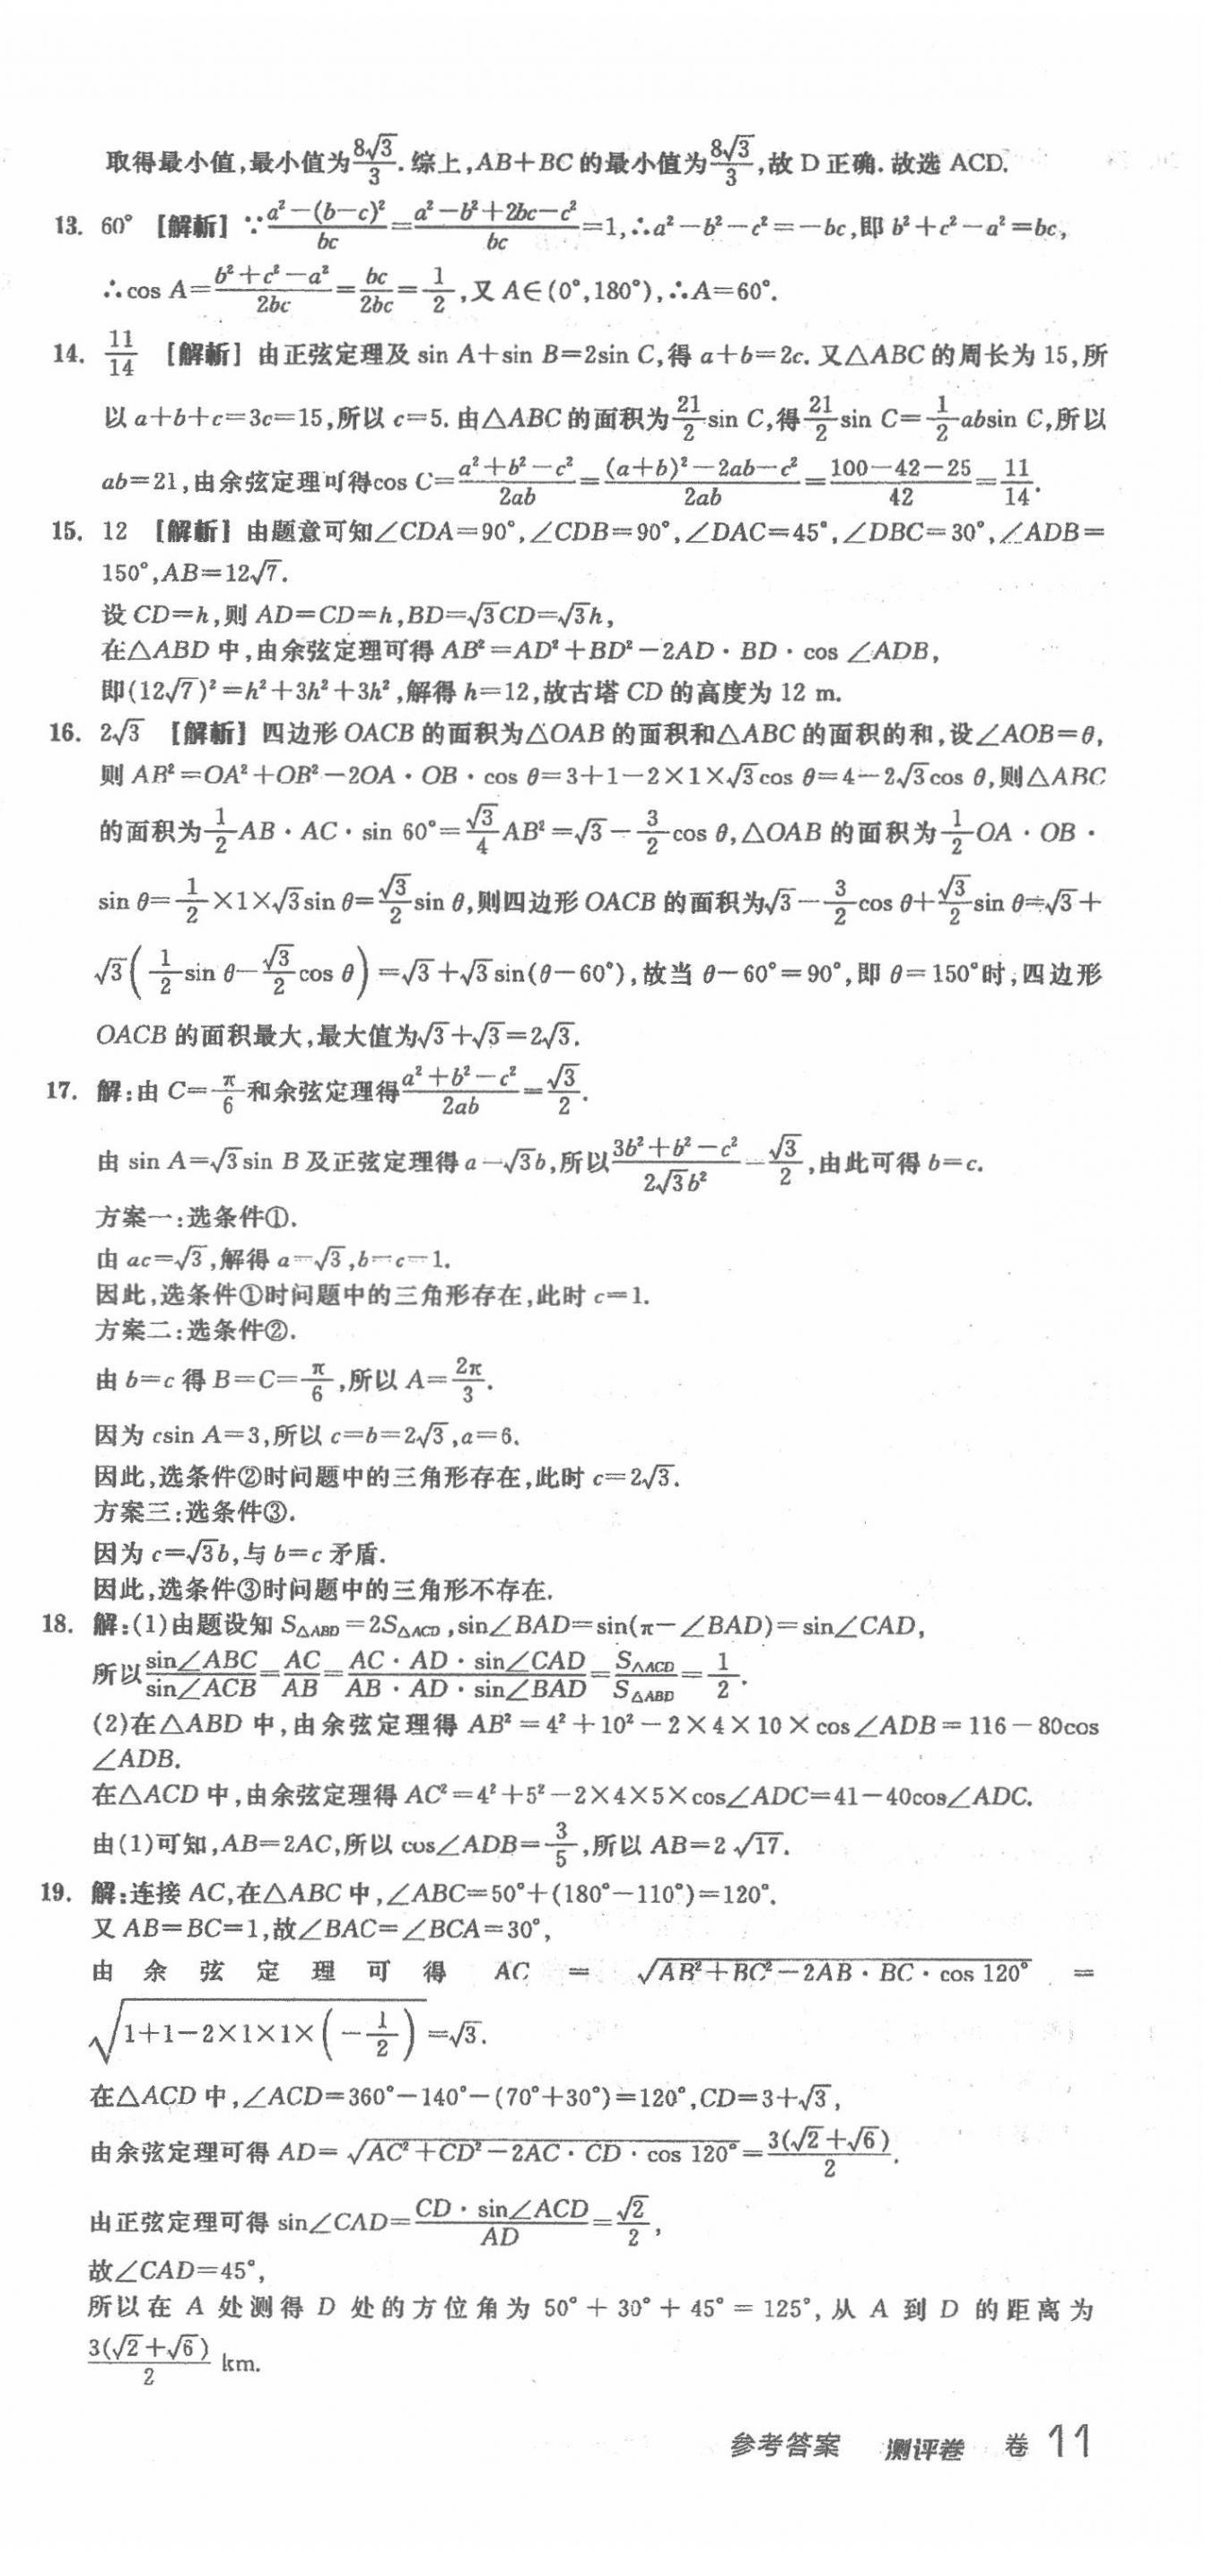 取得最小值,最小值为8√3/3.综上,AB+BC的最小值为8√3/3,故D正确.故选ACD.
13. 60° [解析] ∵(a²-(b-c)²)/bc=(a²-b²+2bc-c²)/bc=1,∴a²-b²-c²=-bc,即b²+c²-a²=bc,
∴cos A=(b²+c²-a²)/2bc=bc/2bc=1/2,又A∈(0°,180°),∴A=60°.
14. 11/14 [解析] 由正弦定理及sin A+sin B=2sin C,得a+b=2c.又△ABC的周长为15,所
以a+b+c=3c=15,所以c=5.由△ABC的面积为21/2 sin C,得21/2 sin C=1/2 absin C,所以
ab=21,由余弦定理可得cos C=(a²+b²-c²)/2ab=((a+b)²-2ab-c²)/2ab=(100-42-25)/42=11/14.
15. 12 [解析] 由题意可知∠CDA=90°,∠CDB=90°,∠DAC=45°,∠DBC=30°,∠ADB=
150°,AB=12√7.
设CD=h,则AD=CD=h,BD=√3CD=√3h,
在△ABD中,由余弦定理可得AB²=AD²+BD²-2AD·BD·cos ∠ADB,
即(12√7)²=h²+3h²+3h²,解得h=12,故古塔CD的高度为12 m.
16. 2√3 [解析] 四边形OACB的面积为△OAB的面积和△ABC的面积的和,设∠AOB=θ,
则AB²=OA²+OB²-2OA·OB·cos θ=3+1-2×1×√3cos θ=4-2√3cos θ,则△ABC
的面积为1/2 AB·AC·sin 60°=√3/4 AB²=√3-3/2 cos θ,△OAB的面积为1/2 OA·OB·
sin θ=1/2×1×√3sin θ=√3/2 sin θ,则四边形OACB的面积为√3-3/2 cos θ+√3/2 sin θ=√3+
√3(1/2 sin θ-√3/2 cos θ)=√3+√3sin(θ-60°),故当θ-60°=90°,即θ=150°时,四边形
OACB的面积最大,最大值为√3+√3=2√3.
17. 解:由C=π/6和余弦定理得(a²+b²-c²)/2ab=√3/2.
由sin A=√3sin B及正弦定理得a=√3b,所以(3b²+b²-c²)/2√3b²=√3/2,由此可得b=c.
方案一:选条件①.
由ac=√3,解得a=√3,b=c=1.
因此,选条件①时问题中的三角形存在,此时c=1.
方案二:选条件②.
由b=c得B=C=π/6,所以A=2π/3.
因为csin A=3,所以c=b=2√3,a=6.
因此,选条件②时问题中的三角形存在,此时c=2√3.
方案三:选条件③.
因为c=√3b,与b=c矛盾.
因此,选条件③时问题中的三角形不存在.
18. 解:(1)由题设知S△ABD=2S△ACD,sin∠BAD=sin(π-∠BAD)=sin∠CAD,
所以sin∠ABC/sin∠ACB=AC/AB=(AC·AD·sin∠CAD)/(AB·AD·sin∠BAD)=S△ACD/S△ABD=1/2.
(2)在△ABD中,由余弦定理得AB²=4²+10²-2×4×10×cos∠ADB=116-80cos
∠ADB.
在△ACD中,由余弦定理得AC²=4²+5²-2×4×5×cos∠ADC=41-40cos∠ADC.
由(1)可知,AB=2AC,所以cos∠ADB=3/5,所以AB=2√17.
19. 解:连接AC,在△ABC中,∠ABC=50°+(180°-110°)=120°.
又AB=BC=1,故∠BAC=∠BCA=30°,
由余弦定理可得 AC=√(AB²+BC²-2AB·BC·cos 120°)=
√(1+1-2×1×1×(-1/2))=√3.
在△ACD中,∠ACD=360°-140°-(70°+30°)=120°,CD=3+√3,
由余弦定理可得AD=√(AC²+CD²-2AC·CD·cos 120°)=3(√2+√6)/2.
由正弦定理可得sin∠CAD=(CD·sin∠ACD)/AD=√2/2,
故∠CAD=45°,
所以在A处测得D处的方位角为50°+30°+45°=125°,从A到D的距离为
3(√2+√6)/2 km.
参考答案 测评卷 卷 11